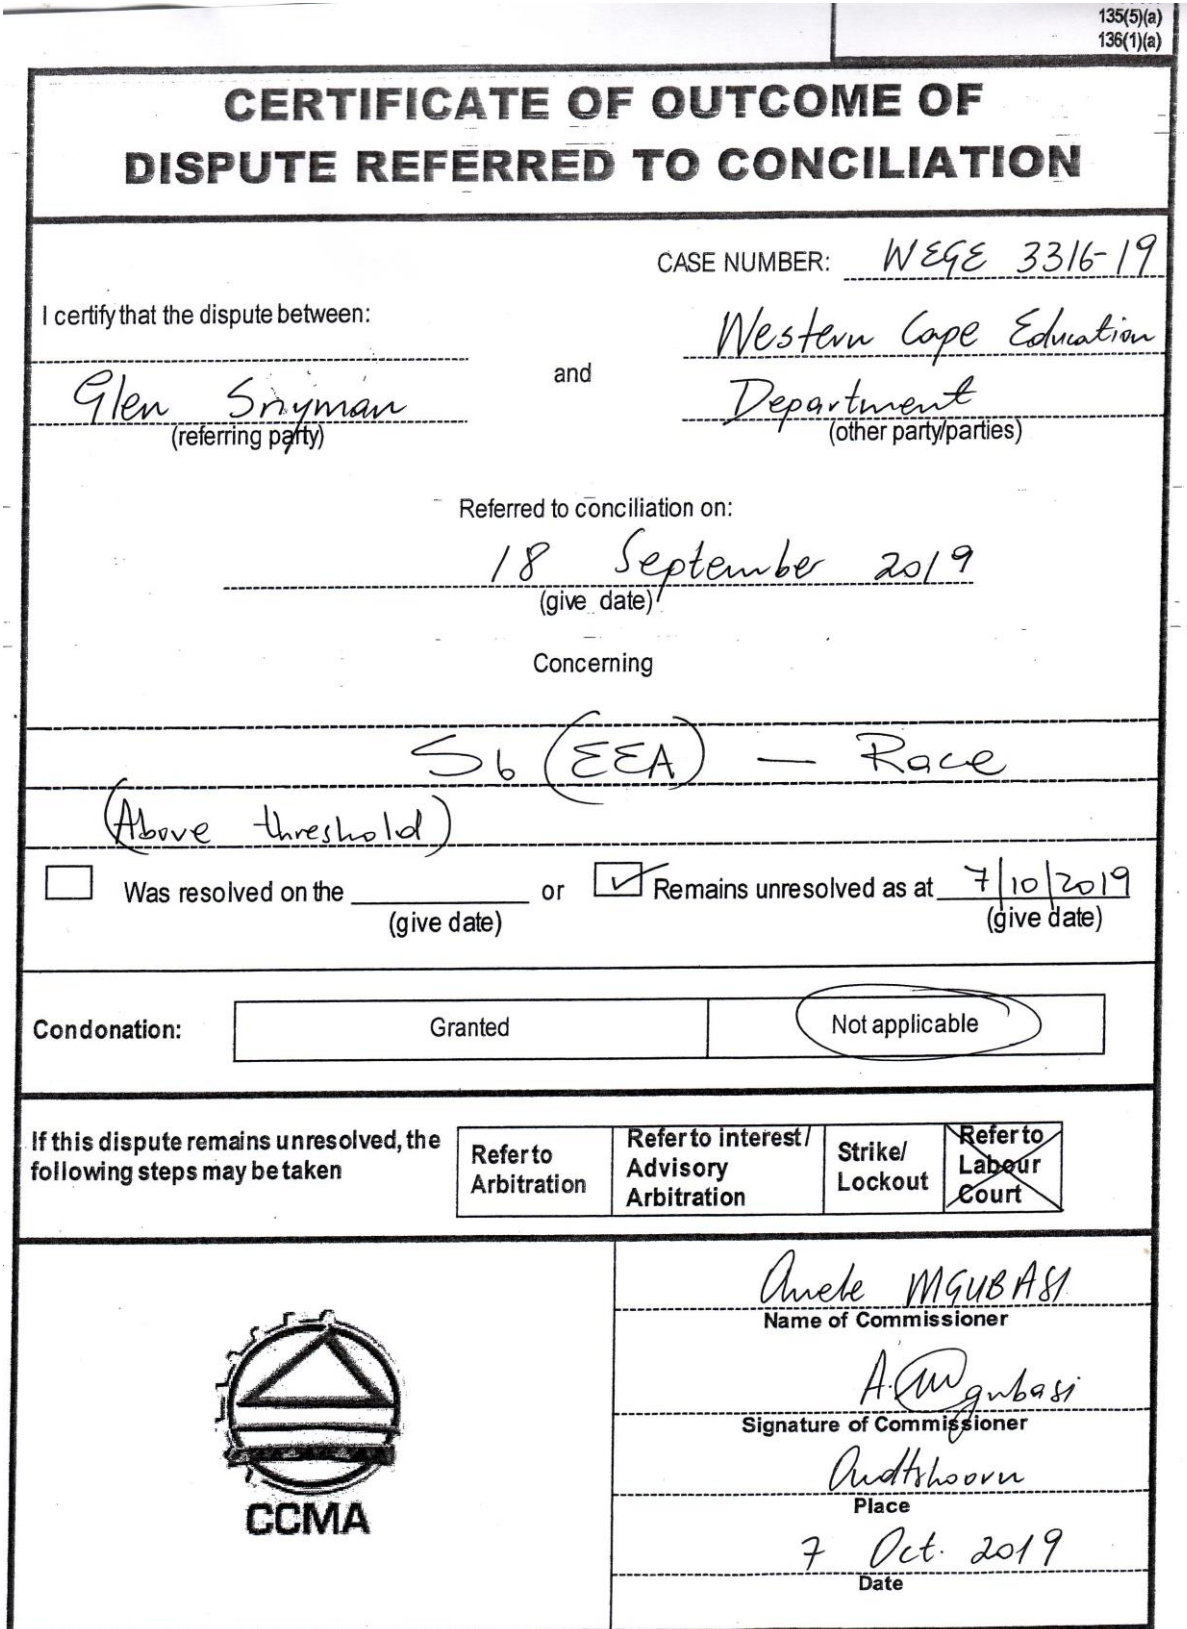 135(5)(a)
136(1)(a)
CERTIFICATE OF OUTCOME OF
DISPUTE REFERRED TO CONCILIATION
CASE NUMBER: WEGE 3316-19
I certify that the dispute between:
Glen Snyman
(referring party)
and
Western Cape Education
Department
(other party/parties)
Referred to conciliation on:
18 September 2019
(give date)
Concerning
S6 (EEA) — Race
(Above threshold)
Was resolved on the or Remains unresolved as at 7/10/2019
(give date) (give date)
Condonation: Granted Not applicable
If this dispute remains unresolved, the
following steps may be taken
Refer to
Arbitration
Refer to interest/
Advisory
Arbitration
Strike/
Lockout
Refer to
Labour
Court
CCMA
Anele MGUBASI
Name of Commissioner
A. Mgubasi
Signature of Commissioner
Oudtshoorn
Place
7 Oct. 2019
Date